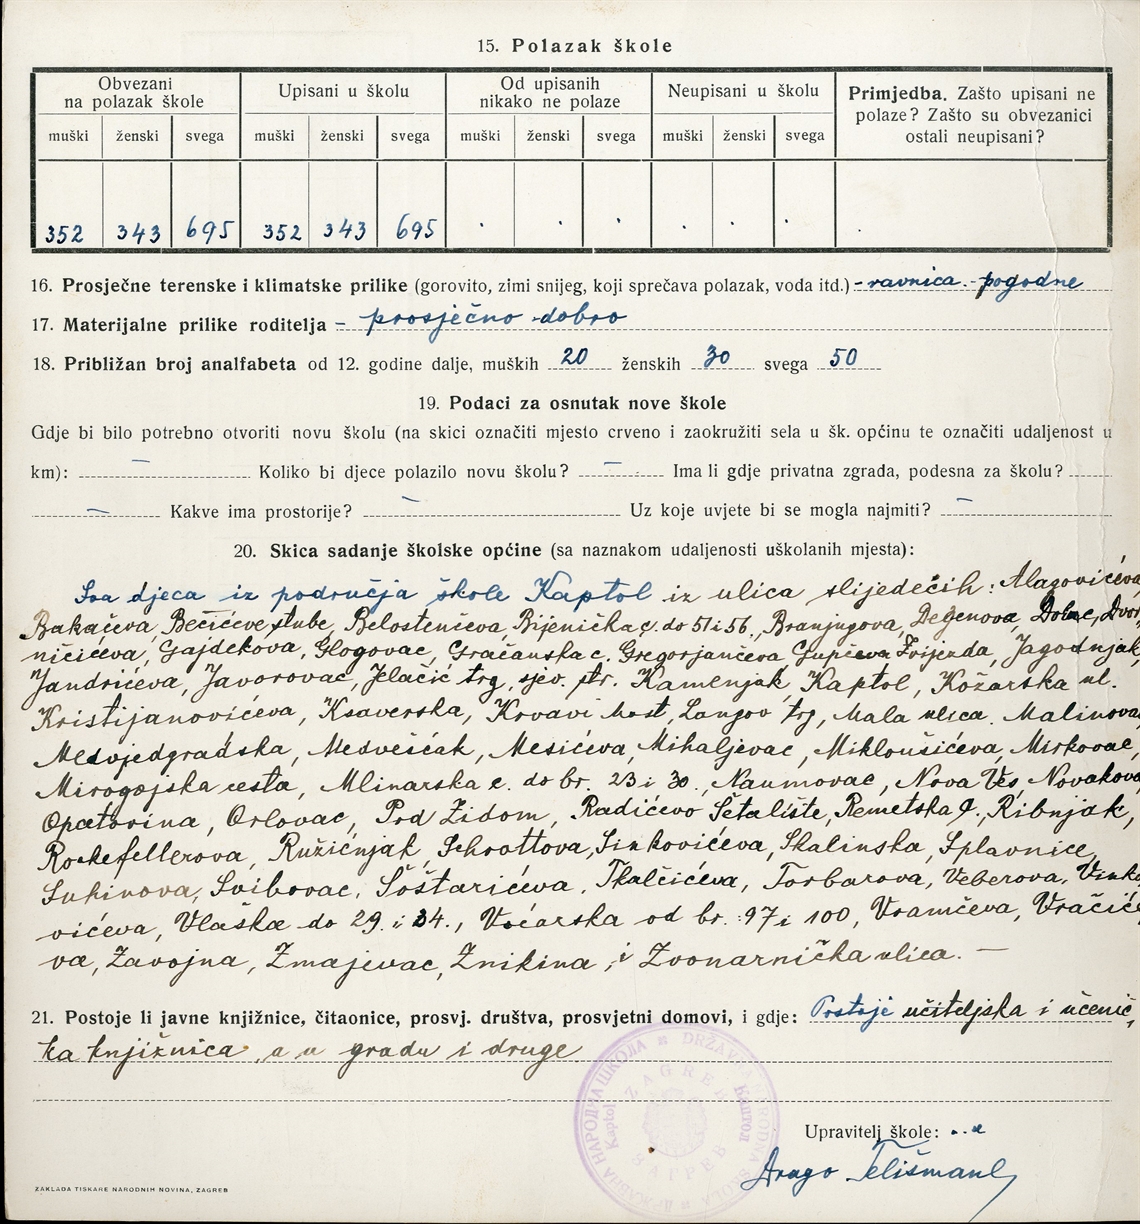 15. Polazak škole
Obvezani na polazak škole
Upisani u školu
Od upisanih nikako ne polaze
Neupisani u školu
Primjedba. Zašto upisani ne polaze? Zašto su obvezanici ostali neupisani?
muški ženski svega muški ženski svega muški ženski svega muški ženski svega
352 343 695 352 343 695 . . . . . . .
16. Prosječne terenske i klimatske prilike (gorovito, zimi snijeg, koji sprečava polazak, voda itd.) - ravnica - pogodne
17. Materijalne prilike roditelja - prosječno dobro
18. Približan broj analfabeta od 12. godine dalje, muških 20 ženskih 30 svega 50
19. Podaci za osnutak nove škole
Gdje bi bilo potrebno otvoriti novu školu (na skici označiti mjesto crveno i zaokružiti sela u šk. općinu te označiti udaljenost u
km): — Koliko bi djece polazilo novu školu? — Ima li gdje privatna zgrada, podesna za školu?
— Kakve ima prostorije? — Uz koje uvjete bi se mogla najmiti? —
20. Skica sadanje školske općine (sa naznakom udaljenosti uškolanih mjesta):
Sva djeca iz područja škole Kaptol iz ulica slijedećih: Alagovićeva,
Bakačeva, Bečićeve stube, Belostenčeva, Bijenička c. do 51 i 56., Branjugova, Degenova, Dolac, Dvor
ničićeva, Gajdekova, Glogovac, Gračanska c. Gregorjančeva, Gupčeva Zvijezda, Jagodnjak,
Jandrićeva, Javorovac, Jelačić trg, sjev. str. Kamenjak, Kaptol, Kožarska ul.
Kristijanovićeva, Ksaverska, Krvavi Most, Langov trg, Mala ulica. Malinova,
Medvjedgradska, Medveščak, Mesićeva, Mihaljevac, Mikloušićeva, Mirkovac,
Mirogojska cesta, Mlinarska c. do br. 23 i 30., Naumovac, Nova Ves, Novakova
Opatovina, Orlovac, Pod Zidom, Radićevo Šetalište, Remetska c., Ribnjak,
Rockefellerova, Ružičnjak, Schrottova, Sinkovićeva, Skalinska, Splavnice,
Suhinova, Svibovac, Šoštarićeva, Tkalčićeva, Torbarova, Veberova, Vinko
vićeva, Vlaška do 29. i 34., Voćarska od br. 97 i 100, Vramčeva, Vračiće
va, Zavojna, Zmajevac, Znikina, i Zvonarnička ulica. —
21. Postoje li javne knjižnice, čitaonice, prosvj. društva, prosvjetni domovi, i gdje: Postoje učiteljska i učenič
ka knjižnica, a u gradu i druge
ДРЖАВНА НАРОДНА ШКОЛА DRŽAVNA NARODNA ŠKOLA
Kaptol Каптол
ZAGREB ЗАГРЕБ
Upravitelj škole:
Drago Telišman
ZAKLADA TISKARE NARODNIH NOVINA, ZAGREB